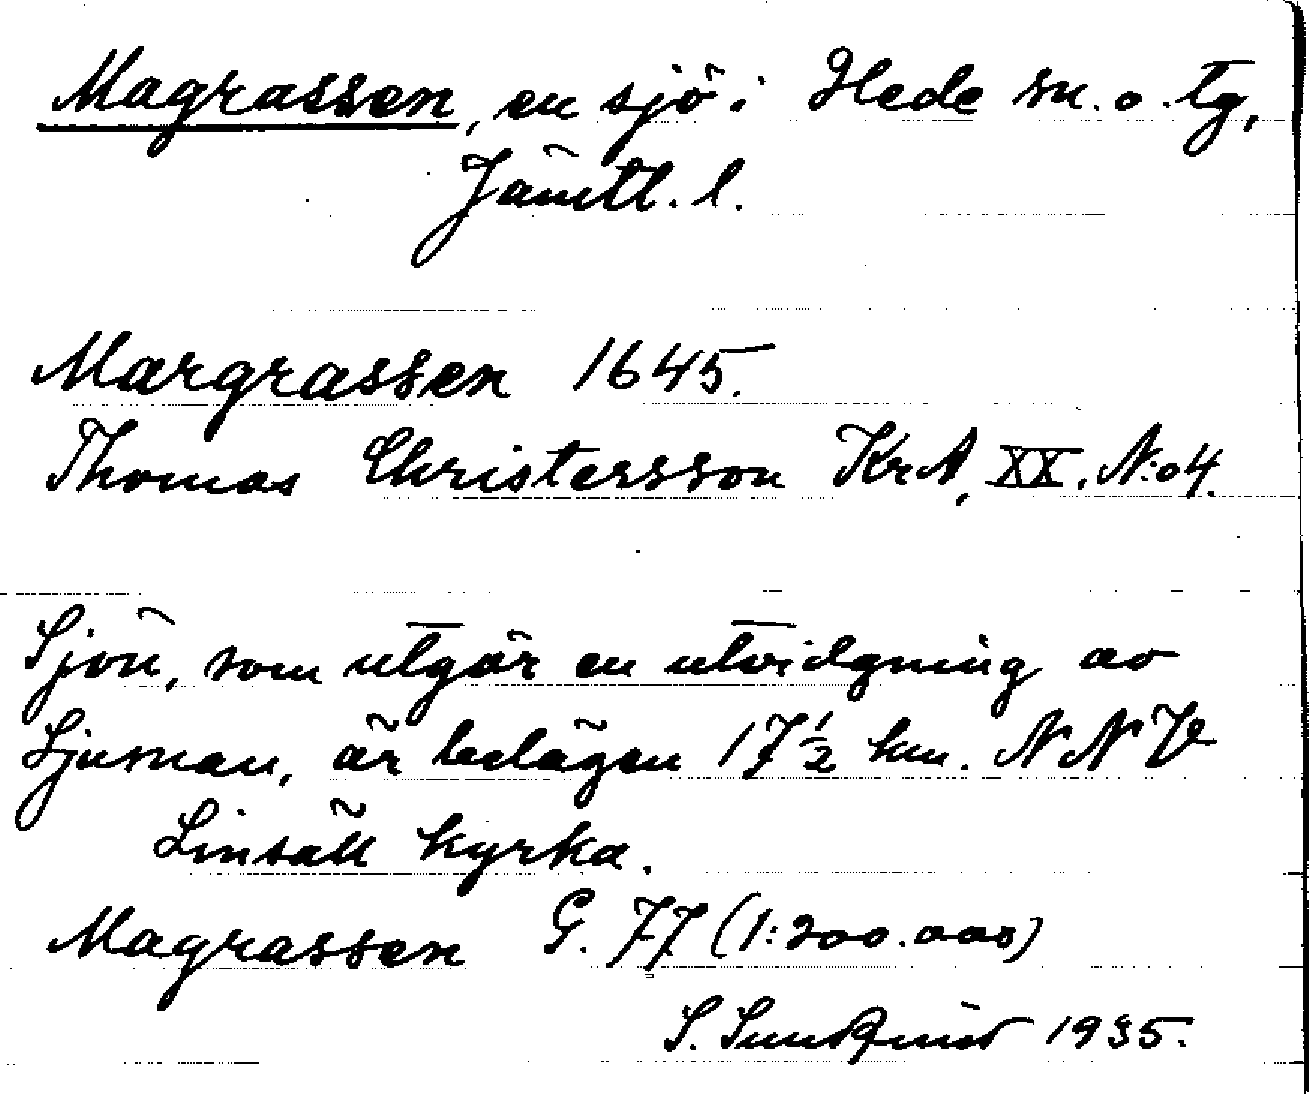 Magrassen, en sjö i Hede sn. o. tg,
Jämtl. l.
Margrassen 1645.
Thomas Christersson KrA, XX, N:o 4.
Sjön, som utgör en utvidgning av
Ljusnan, är belägen 17 1/2 km. NNV
Linsäll kyrka.
Magrassen G. 77 (1:200.000)
S. Sundqvist 1935.